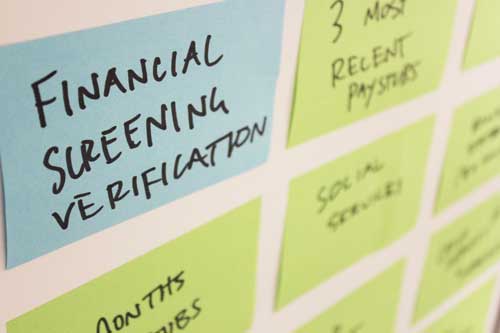 FINANCIAL
SCREENING
VERIFICATION
3 MOST
RECENT
PAYSTUBS
SOCIAL
SERVICES
MONTHS